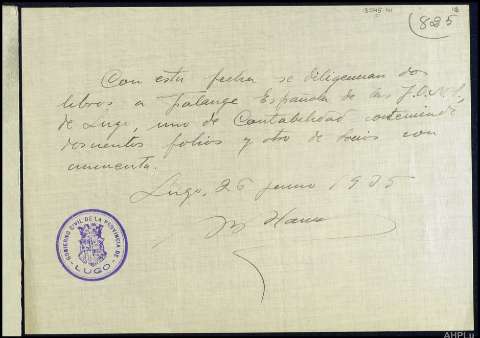 835
Con esta fecha se diligencian dos
libros a Falange Española de las J.O.N.S.
de Lugo, uno de Contabilidad conteniendo
doscientos folios y otro de socios con
cincuenta.
Lugo, 26 junio 1935
GOBIERNO CIVIL DE LA PROVINCIA DE
- LUGO -
AHPLu